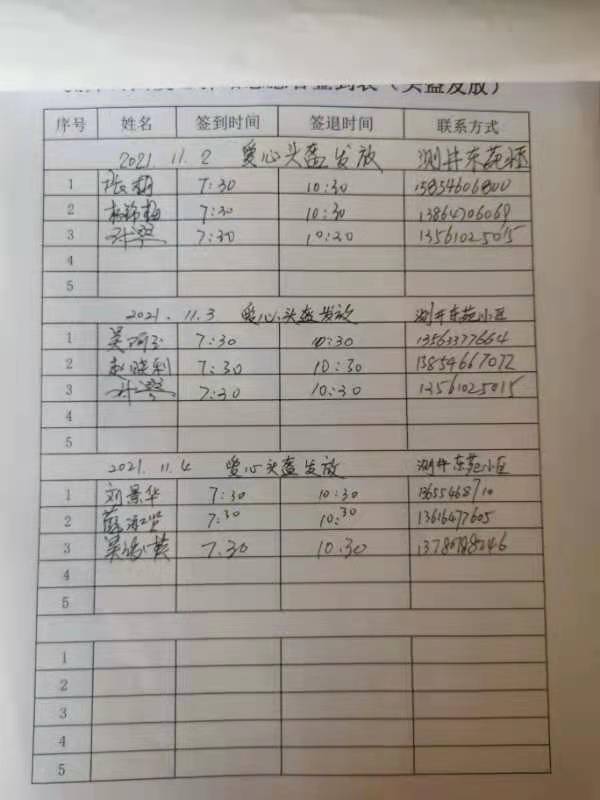 签到表（头盔发放）
序号 姓名 签到时间 签退时间 联系方式
2021. 11. 2 爱心头盔发放 测井东苑小区
1 7:30 10:30 13854606800
2 7:30 10:30 13864706069
3 7:30 10:30 13561025015
4
5
2021. 11. 3 爱心头盔发放 测井东苑小区
1 7:30 10:30 13563377664
2 赵晓利 7:30 10:30 13854667072
3 7:30 10:30 13561025015
4
5
2021. 11. 4 爱心头盔发放 测井东苑小区
1 刘景华 7:30 10:30
2 7:30 10:30 13616477605
3 7.30 10.30
4
5
1
2
3
4
5